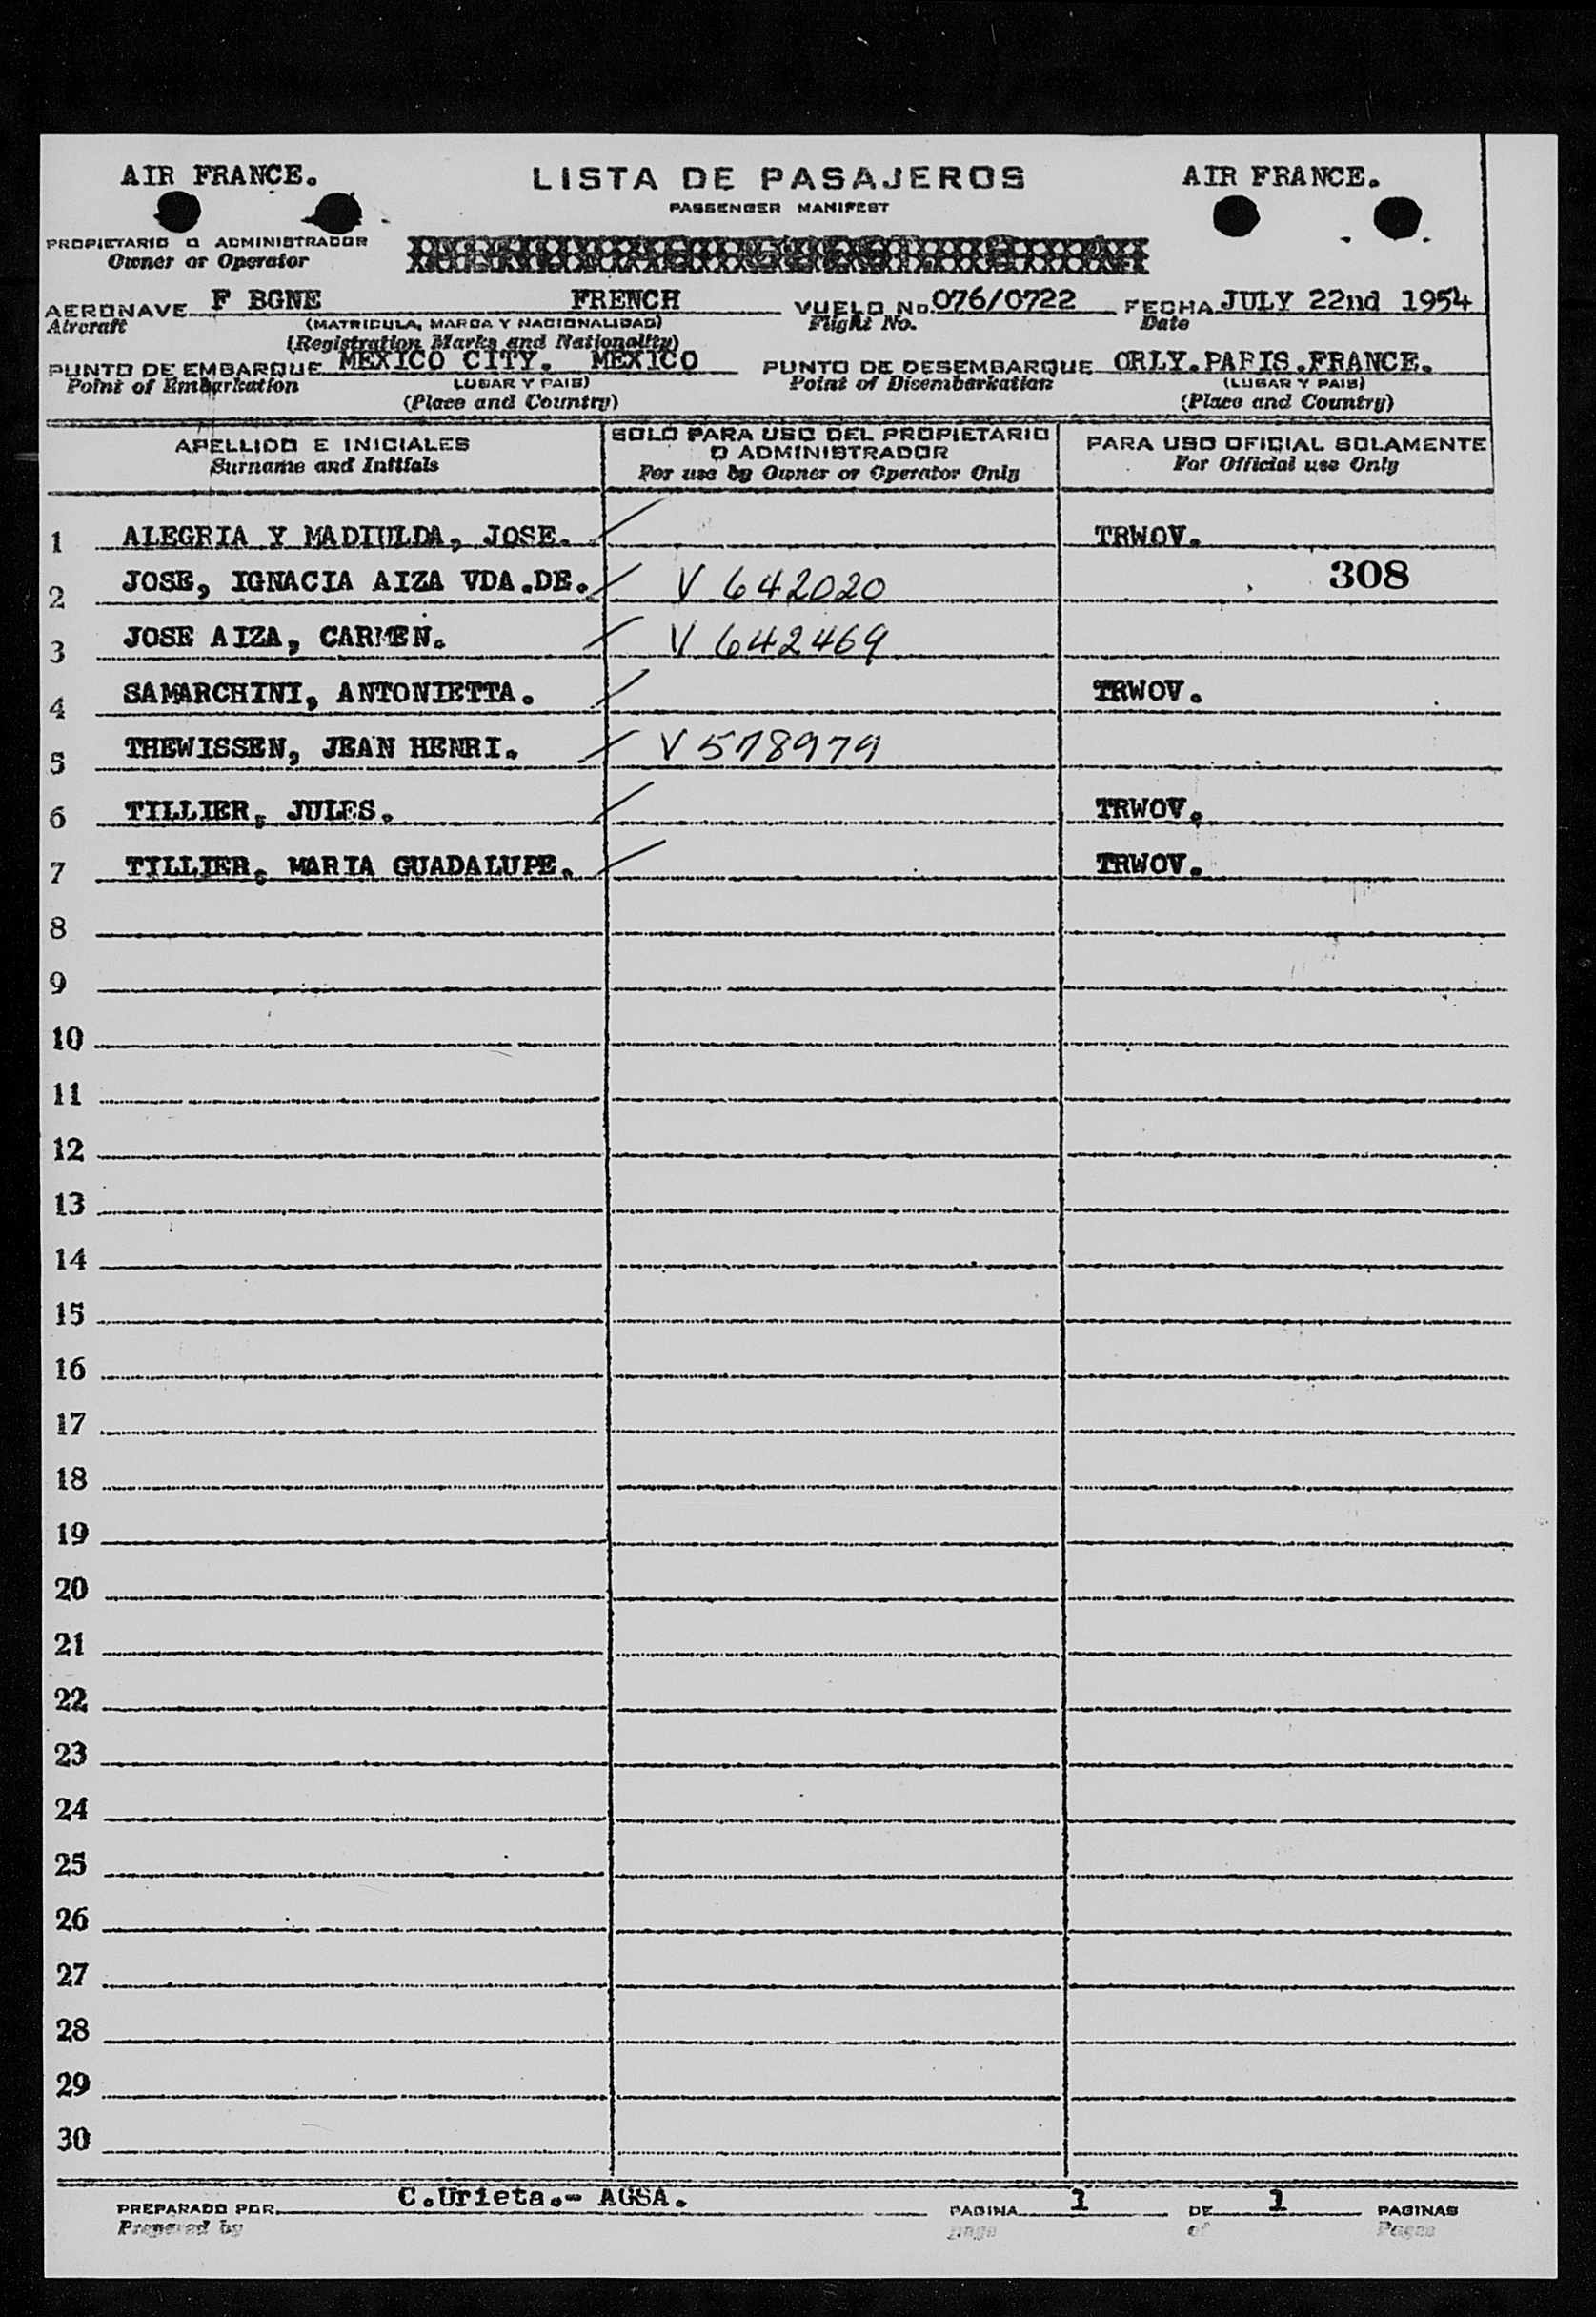 AIR FRANCE. LISTA DE PASAJEROS AIR FRANCE.
PASSENGER MANIFEST
PROPIETARIO O ADMINISTRADOR
Owner or Operator
AERONAVE F BGNE FRENCH VUELO No. 076/0722 FECHA JULY 22nd 1954
Aircraft (MATRICULA, MARCA Y NACIONALIDAD) Flight No. Date
(Registration Marks and Nationality)
PUNTO DE EMBARQUE MEXICO CITY. MEXICO PUNTO DE DESEMBARQUE ORLY.PARIS.FRANCE.
Point of Embarkation LUGAR Y PAIS) Point of Disembarkation (LUGAR Y PAIS)
(Place and Country) (Place and Country)
APELLIDO E INICIALES SOLO PARA USO DEL PROPIETARIO O ADMINISTRADOR PARA USO OFICIAL SOLAMENTE
Surname and Initials For use by Owner or Operator Only For Official use Only
1 ALEGRIA Y MADIULDA, JOSE. / TRWOV.
308
2 JOSE, IGNACIA AIZA VDA.DE. / V 642020
3 JOSE AIZA, CARMEN. / V 642469
4 SAMARCHINI, ANTONIETTA. / TRWOV.
5 THEWISSEN, JEAN HENRI. / V 578979
6 TILLIER, JULES. / TRWOV.
7 TILLIER, MARIA GUADALUPE. / TRWOV.
8
9
10
11
12
13
14
15
16
17
18
19
20
21
22
23
24
25
26
27
28
29
30
PREPARADO POR C.Urieta.- AGSA. PAGINA 1 DE 1 PAGINAS
Prepared by page of Pages